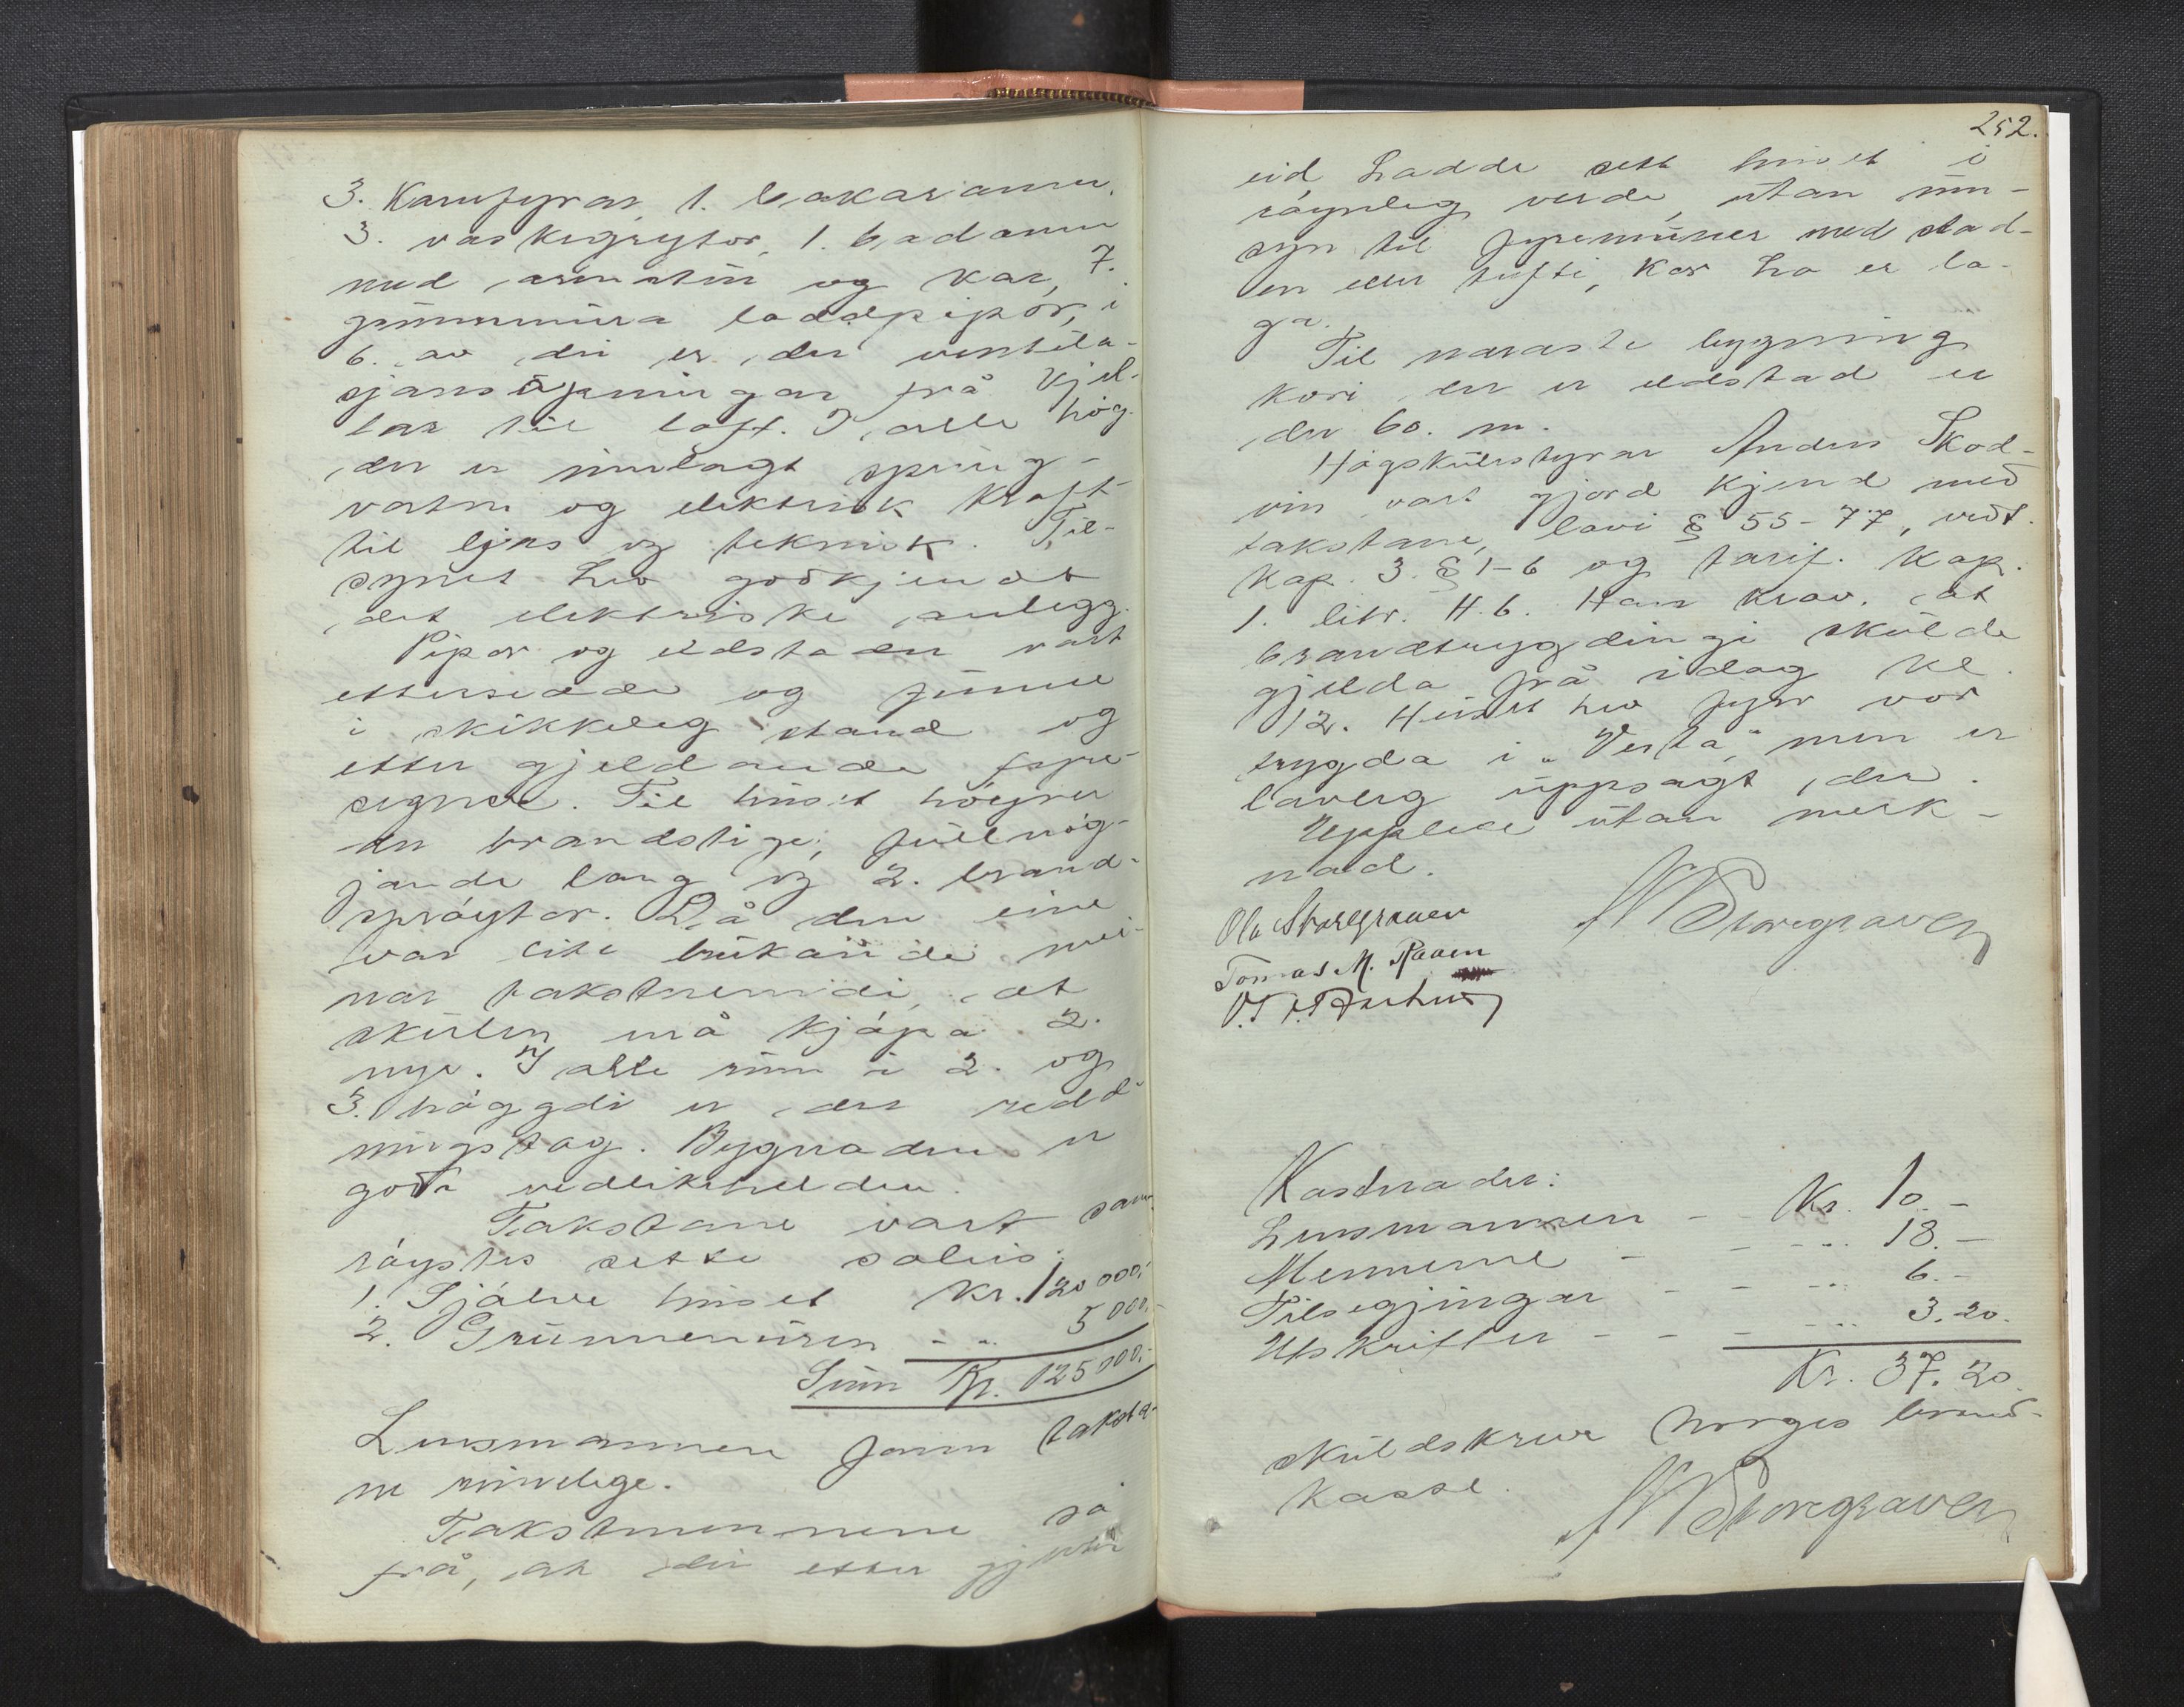 3. Kamfyrar, 1. bakaramn.
3. vaskegrytor, 1. badamn
med armatur og kar, 7.
gjenummura loddpipor, i
6. av dei er der ventila-
sjonsopningar frå kjel-
lar til loft. I alle høg-
der er innlagt spring-
vatn og elektrisk kraft
til ljos og teknisk. Til-
synet hev godkjendt
det elektriske anlegg.
Pipor og eldstader vart
ettersedde og funne
i skikkeleg stand og
etter gjeldande fyre-
segner. Til huset høyrer
ein brandstige, fullnøg-
jande lang og 2. brand-
sprøytor. Då den eine
var lite brukande mei-
nar takstnemdi, at
skulen må kjøpa 2.
nye. I alle rum i 2. og
3. høggdi er der redd-
ningstog. Bygnaden er
godt vedlikehelden.
Takstane vart sam-
røystes sette soleis:
1. Sjølve huset Kr. 120 000,-
2. Grunnmuren - - 5 000,-
Sum Kr. 125 000,-
Lensmannen fann taksta-
ne rimelege.
Takstmennene sa
frå, at dei etter gjevin
252.
eid hadde sett huset i
røynleg verde, utan um-
syn til fyremuner med stad-
en eller tufti, kor ho er la-
ga.
Til naraste bygning
kori der er eldstad er
der 60. m.
Høgskulestyrar Anders Skod-
vin vart gjord kjend med
takstane, lovi § 55-77, vedt.
kap. 3. § 1-6 og tarif. kap.
1. litr. H. 6. Han krov, at
brandtrygdingi skulde
gjelda frå idag kl.
12. Huset hev fyrr vor
trygda i "Vesta", men er
lovleg uppsagt der.
Upplese utan merk-
nad.
Ola Storegraven N Storegraven
Tomas M. Raaen
Kostnader:
Lensmannen - - Kr. 10.-
Mennene - - - .. 18.-
Tilsegjingar - - - .. 6.-
Utskrifter - - - - .. 3.20.
Kr. 37.20.
skuldskreve Norges brand-
kasse.
N Storegraven